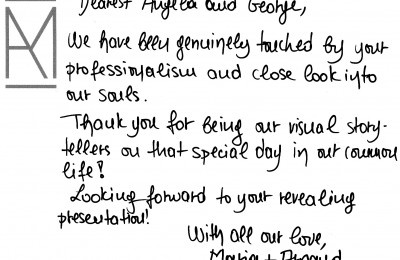 Dearest Angela and George,
We have been genuinely touched by your
professionalism and close look into
our souls.
Thank you for being our visual story-
tellers on that special day in our common
life!
Looking forward to your revealing
presentation!
With all our love,
Maria +